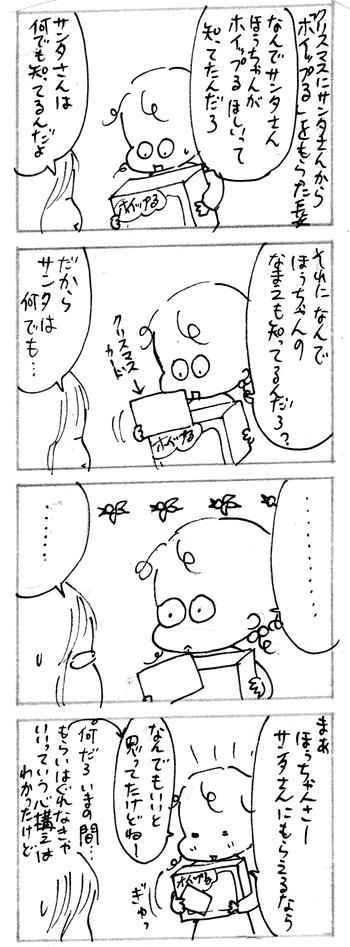 クリスマスにサンタさんから
「ホイップる」をもらった長女
なんでサンタさん
ほうちゃんが
ホイップるほしいって
知ってたんだろ
サンタさんは
何でも知ってるんだよ
ホイップる
それになんで
ほうちゃんの
なまえも知ってるんだろ?
クリスマス
カード
ホイップる
だから
サンタは
何でも…
………
……
まあ
ほうちゃんさー
サンタさんにもらえるなら
なんでもいいと
思ってたけどねー
ホイップる
ぎゅっ
何だろいまの間…
もらいはぐれなきゃ
いいっていう心構えは
わかったけど